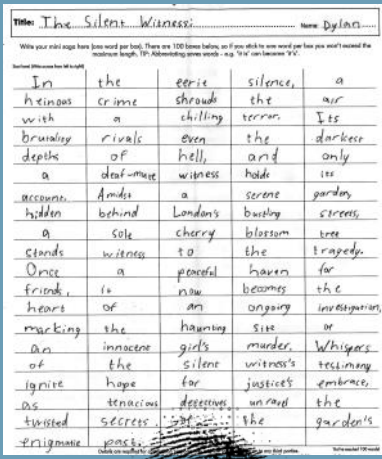 Title: The Silent Witness: Name: Dylan
Write your mini saga here (one word per box). There are 100 boxes below, so if you stick to one word per box you won't exceed the
maximum length. TIP: Abbreviating saves words - e.g. 'it is' can become 'it's'.
In the eerie silence, a
heinous crime shrouds the air
with a chilling terror. Its
brutality rivals even the darkest
depths of hell, and only
a deaf-mute witness holds its
account. Amidst a serene garden,
hidden behind London's bustling streets,
a sole cherry blossom tree
stands witness to the tragedy.
Once a peaceful haven for
friends, it now becomes the
heart of an ongoing investigation,
marking the haunting site of
an innocent girl's murder. Whispers
of the silent witness's testimony
ignite hope for justice's embrace,
as tenacious detectives unravel the
twisted secrets of the garden's
enigmatic past.